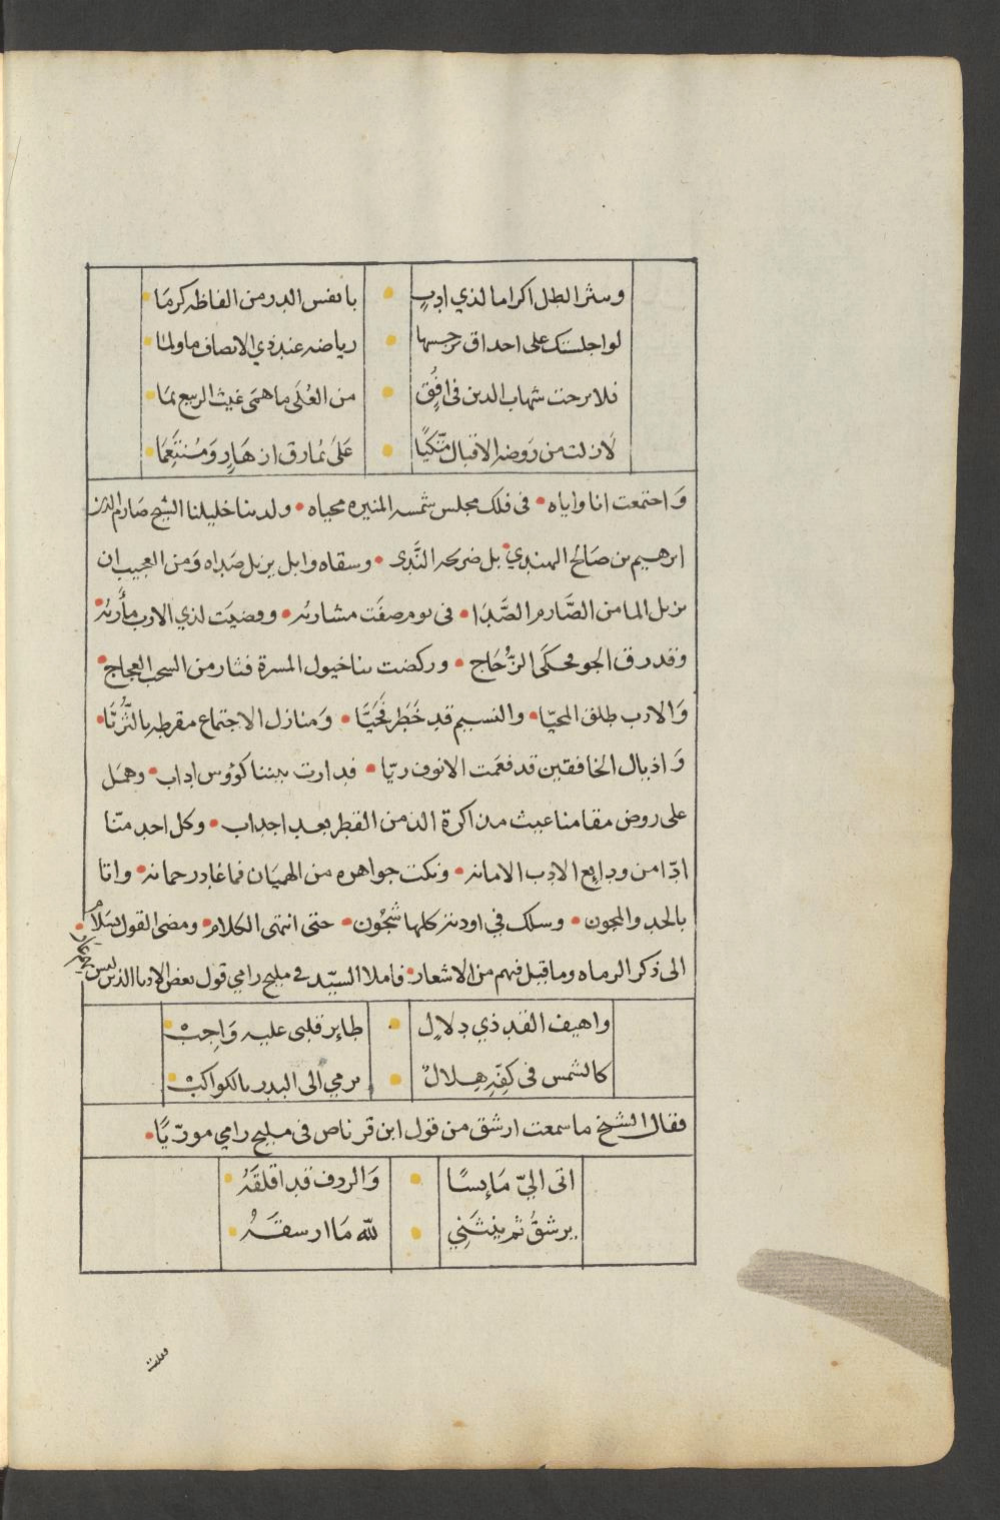 وسثر الطل اكراما لذي ادبٍ • بانفس الدر من الفاظه كرمَا
لواجلسك على احداق نرجسها • رياضه عند ذي الانصاف ماولما
فلا برحت شهاب الدين فى افُق • من العُلَى ما همَى غيث الربيع نمَا
لازلت من رَوضه الاقبال متّكيًا • عَلَى نمارق ازهَارٍ وَمُنتَعَمَا
وَاحتمعت انا واياه • فى فلك مجلس شمسه المنيره محياه • ولدىنا خليلنا الشيخ صَارم الدىن
ابرهيم بن صَالح الهندي • بل ضريحه النَّدى • وسقاه وابل يزيل صَداه وَمن العجيب ان
يزيل الما من الصَّارم الصَّدَا • فى يوم صفَت مشاربه • وقضيَت لذي الادب مأربه •
وقد رق الجو فحكَى الزُّجَاج • وركضت بنا خيول المسرة فثار من السحب العجاج •
وَالادب طلق المحيّا • والنسيم قد خَطَر فحَيَّا • وَمنازل الاجتماع مقرطه بالثُّرَيَّا •
وَاذيال الخافقين قد فعَمت الانوف ريّا • فدارت بيننا كؤوس اداب • وهمَل
على روض مقامنا غيث مذاكرة الذ من القطر بعد اجداب • وكل احد منّا
ادّا من ودايع الادب الامانه • ونكت جواهره من الهميَان فما غادر جمانه • واتا
بالجد والمجون • وسلك في اوديته كلها شجُون • حتى انتهى الكلام • ومضى القول بسَلام •
الى ذكر الرماه وما قيل فيهم من الاشعار • فاملا السيّد فى مليح رامي قول بعض الادبا الذين ليس
واهيف القد ذي دلالٍ • طاير قلبى عليه وَاجبْ •
كالشمس فى كفّهِ هِلالٌ • يرمي الى البدر بالكواكبْ •
فقال الشيخ ما سمعت ارشق من قول ابن قرناص فى مليح رامي مورّيًا •
اتى اليّ مَايسًا • وَالردف قد اقلقَهُ •
يرشقُ ثم ينثَنِي • لله مَا ارسقَهُ •
فعلت